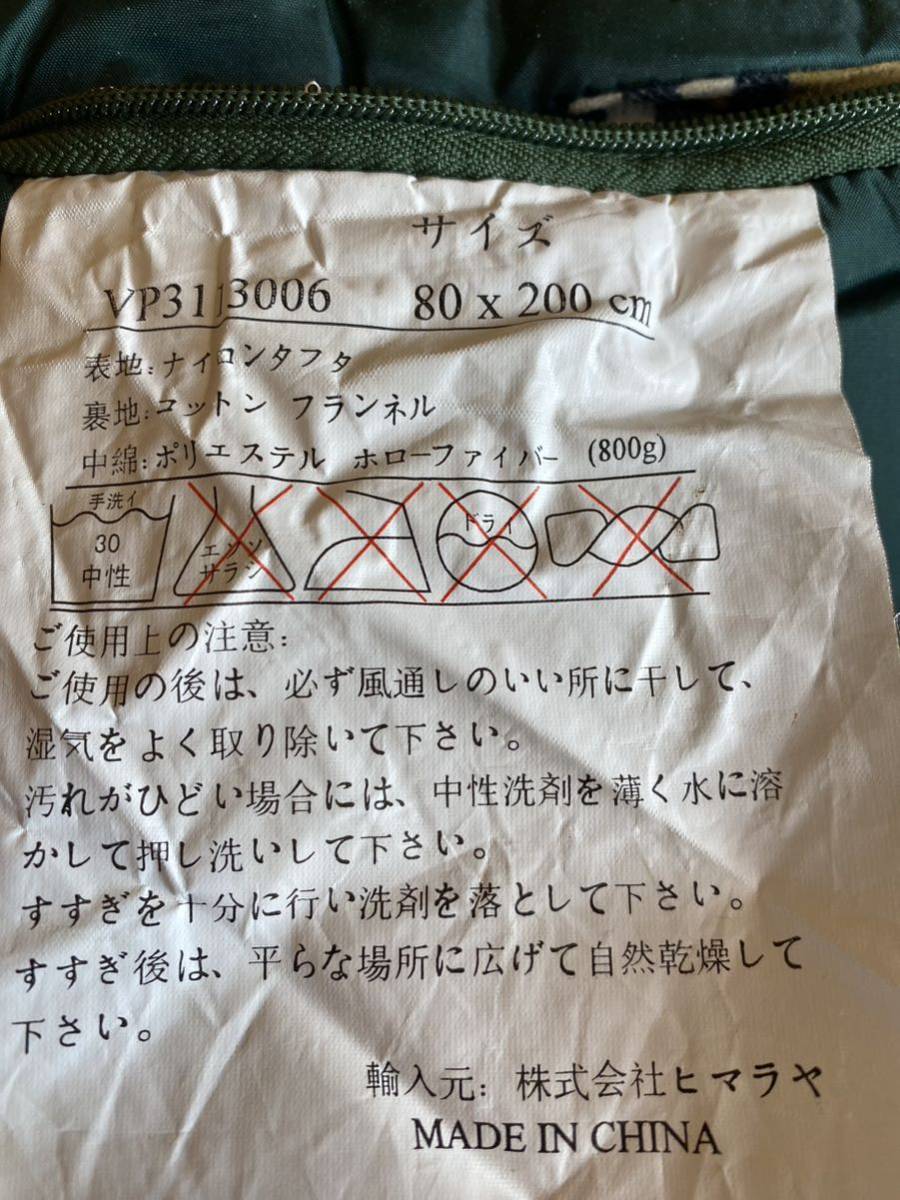 サイズ
VP3113006 80 x 200 cm
表地:ナイロンタフタ
裏地:コットン フランネル
中綿:ポリエステル ホローファイバー (800g)
手洗イ
30
中性
エンソ
サラシ
ドライ
ご使用上の注意:
ご使用の後は、必ず風通しのいい所に干して、
湿気をよく取り除いて下さい。
汚れがひどい場合には、中性洗剤を薄く水に溶
かして押し洗いして下さい。
すすぎを十分に行い洗剤を落として下さい。
すすぎ後は、平らな場所に広げて自然乾燥して
下さい。
輸入元: 株式会社ヒマラヤ
MADE IN CHINA